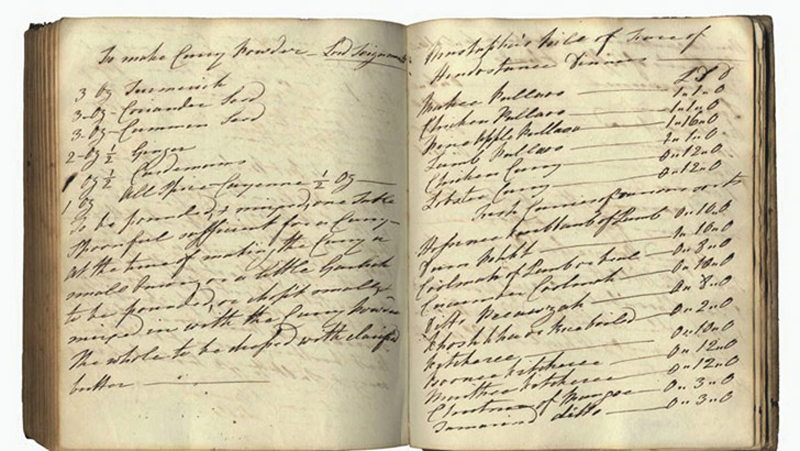 To make Curry Powder – Lord Teignmouth
3 Oz Turmerick
3-Oz- Coriander Seed
3-Oz- Cummin Seed
2-Oz ½ Ginger
Oz ½ Cardemoms
1 Oz All Spice Cayenne ½ Oz
To be pounded & mixed, one Table
Spoonful sufficient for a Curry–
At the time of making the Curry a
small onion, or a little Garlick
to be pounded, or chopt small &
mixed in with the Curry Powder
The whole to be dressed with clarified
butter
Bill of Fare of
Hindostanee Dinners
£ S D
Makee Pullaoo 1" 1" 0
Chicken Pullaoo 1" 1" 0
Pine Apple Pullaoo 1" 16" 0
Lamb Pullaoo 1" 1" 0
Chicken Curry 0" 12" 0
Lobster Curry 0" 12" 0
Curries of various sorts
of Lamb 0" 10" 0
1" 10" 0
Coolmah of Lamb or Veal 0" 8" 0
Cucumber Coolmah 0" 10" 0
Ditto 0" 8" 0
or Rice boiled 0" 2" 0
Kitcheree 0" 10" 0
Kitcheree 0" 12" 0
Kitcheree 0" 12" 0
of Mangoe 0" 3" 0
Tamarind ditto 0" 3" 0